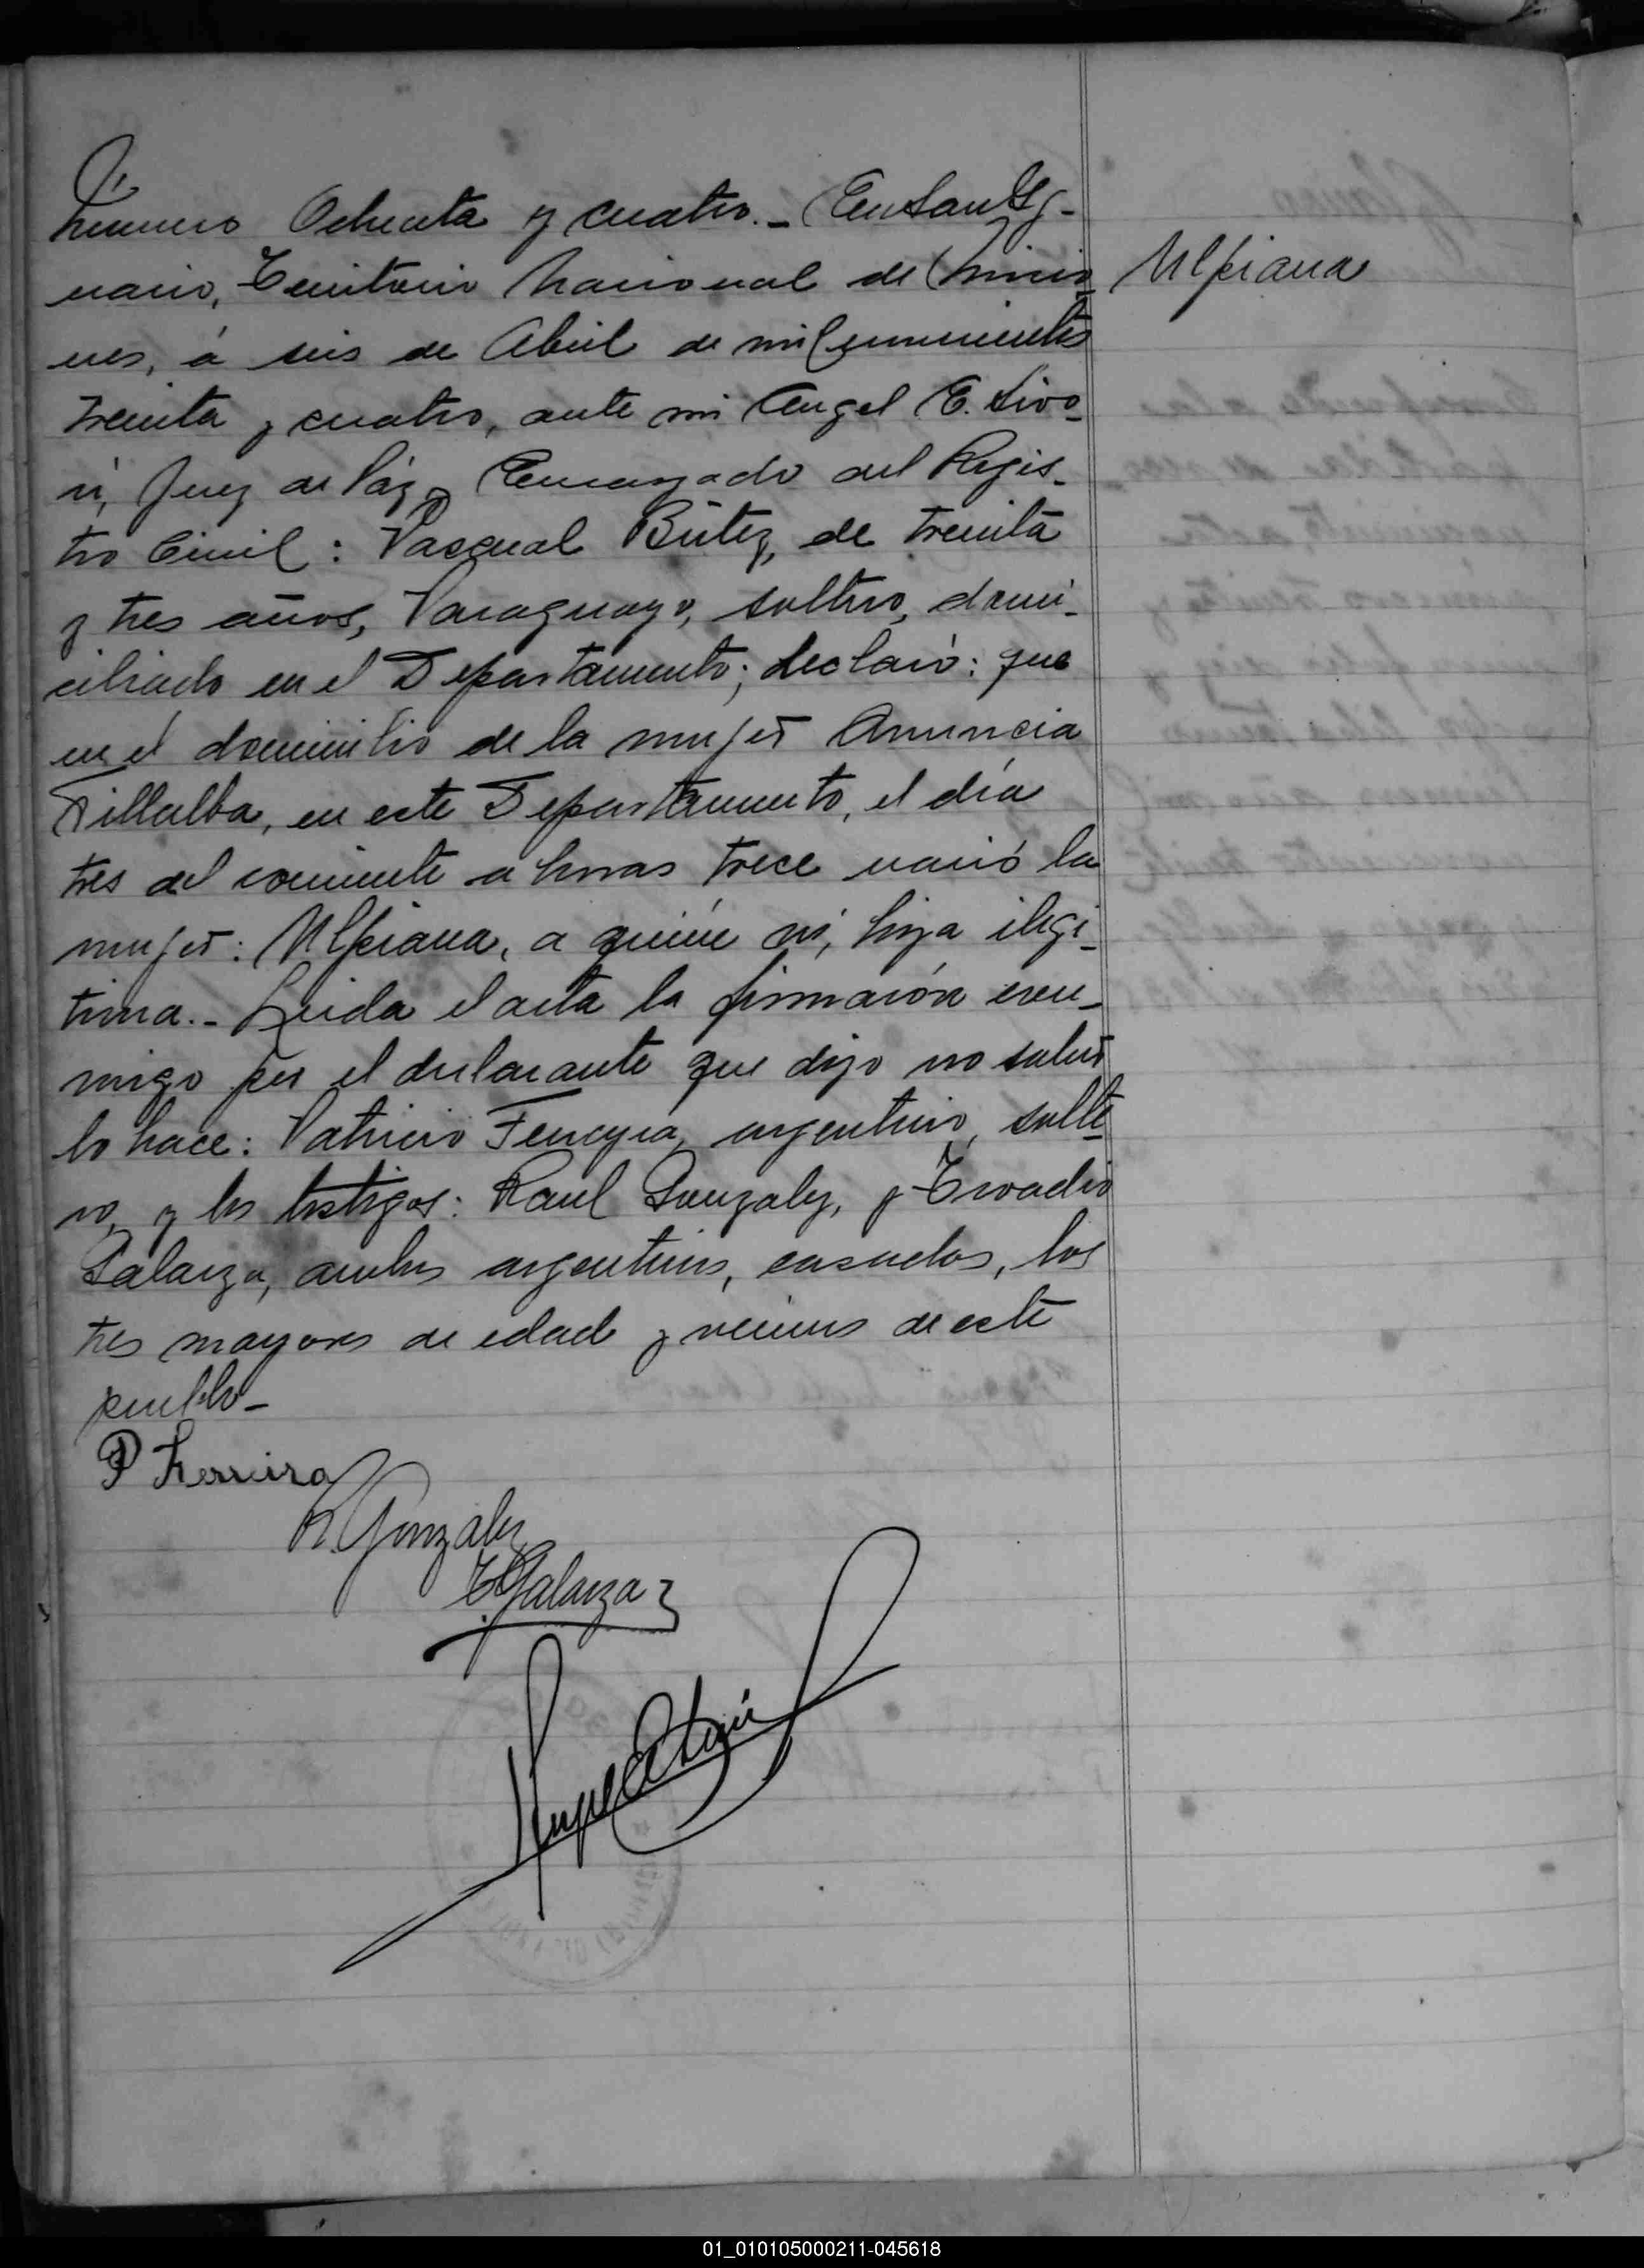 Numero Ochenta y cuatro.- En San Ig-
nacio, Territorio Nacional de Misio-
Ulpiana
nes, á seis de Abril de mil novecientos
treinta y cuatro, ante mi Angel E.
Juez de Páz y Encargado del Regis-
tro Civil: Pascual Bútez, de treinta
y tres años, Paraguayo, soltero, domi-
ciliado en el Departamento; declaró: que
en el domicilio de la mujer Anuncia
Villalba, en este Departamento, el día
tres del corriente a horas trece nació la
mujer: Ulpiana, a quién ví, hija ilegi-
tima.- Leida el acta la firmarón con-
migo por el declarante que dijo no saber
lo hace: Patricio Ferreyra, argentino, solte-
ro, y los testigos: Raul Gonzalez, y
Galarza, ambos argentinos, casados, los
tres mayores de edad y vecinos de este
pueblo-
P Ferreira
R. Gonzalez
E Galarza
01_010105000211-045618